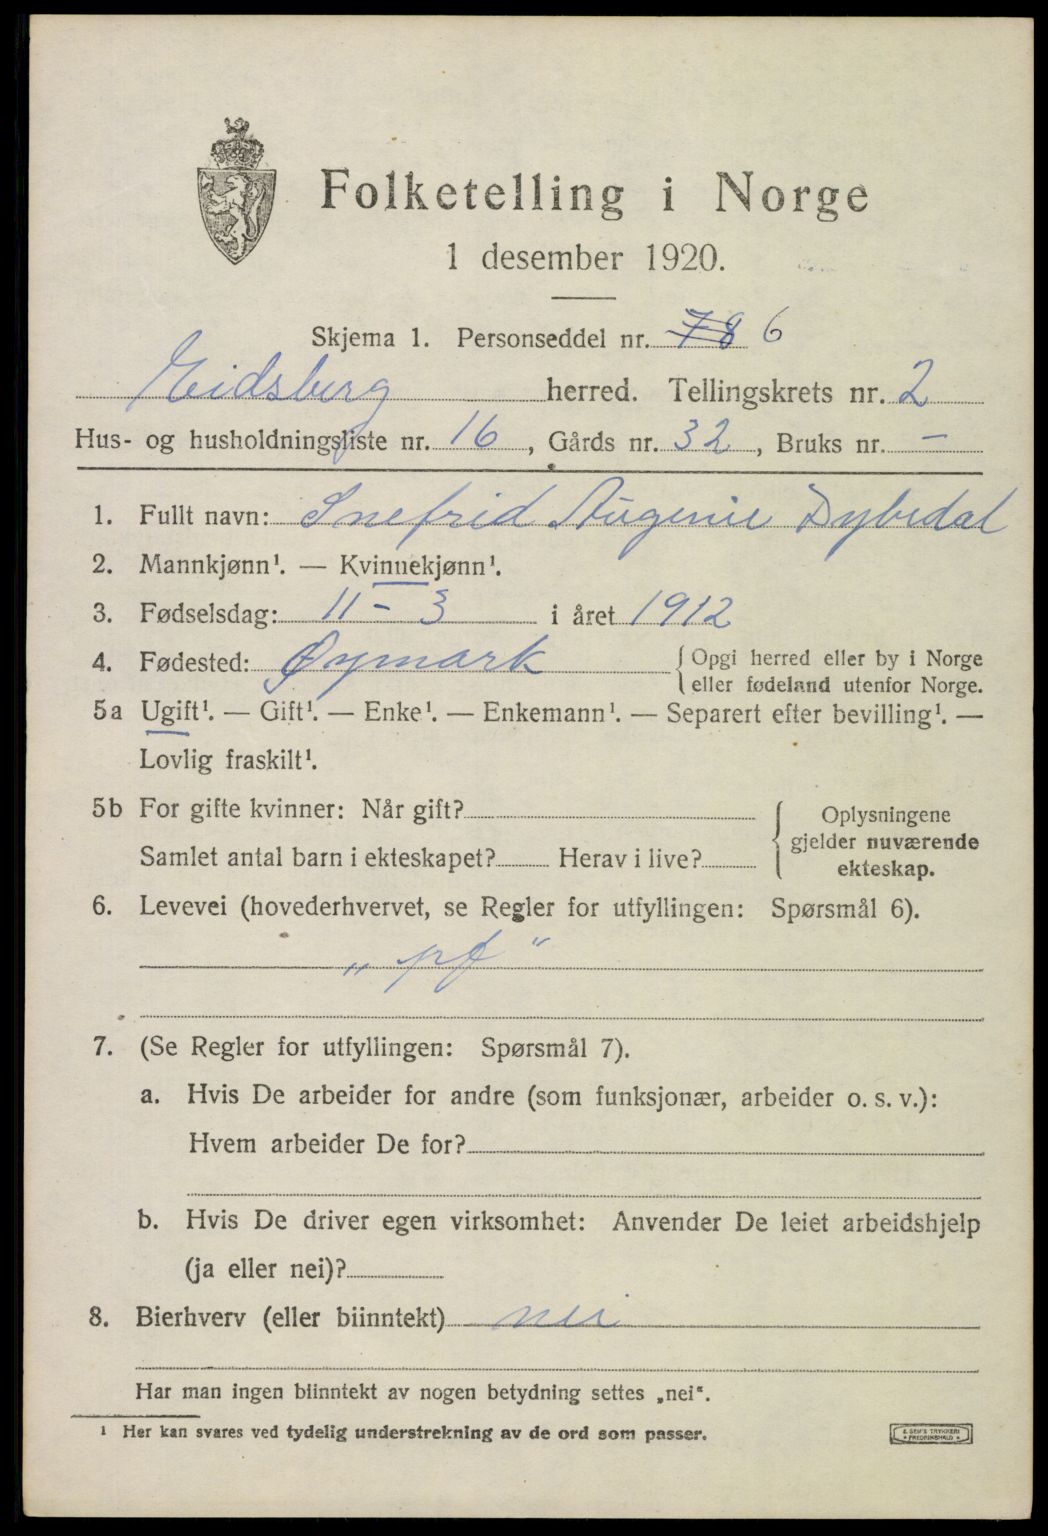 Folketelling i Norge
1 desember 1920.
Skjema 1. Personseddel nr. 78 6
Eidsberg herred. Tellingskrets nr. 2
Hus- og husholdningsliste nr. 16, Gårds nr. 32, Bruks nr. —
1. Fullt navn: Snefrid Augenie Dybedal
2. Mannkjønn¹. — Kvinnekjønn¹.
3. Fødselsdag: 11 – 3 i året 1912
4. Fødested: Øymark { Opgi herred eller by i Norge
eller fødeland utenfor Norge.
5a Ugift¹. — Gift¹. — Enke¹. — Enkemann¹. — Separert efter bevilling¹. —
Lovlig fraskilt¹.
5b For gifte kvinner: Når gift?
Samlet antal barn i ekteskapet? Herav i live?
{ Oplysningene
gjelder nuværende
ekteskap.
6. Levevei (hovederhvervet, se Regler for utfyllingen: Spørsmål 6).
„ pf “
7. (Se Regler for utfyllingen: Spørsmål 7).
a. Hvis De arbeider for andre (som funksjonær, arbeider o. s. v.):
Hvem arbeider De for?
b. Hvis De driver egen virksomhet: Anvender De leiet arbeidshjelp
(ja eller nei)?
8. Bierhverv (eller biinntekt) nei
Har man ingen biinntekt av nogen betydning settes „nei“.
¹ Her kan svares ved tydelig understrekning av de ord som passer.
E. SEM'S TRYKKERI
* FREDRIKSHALD *